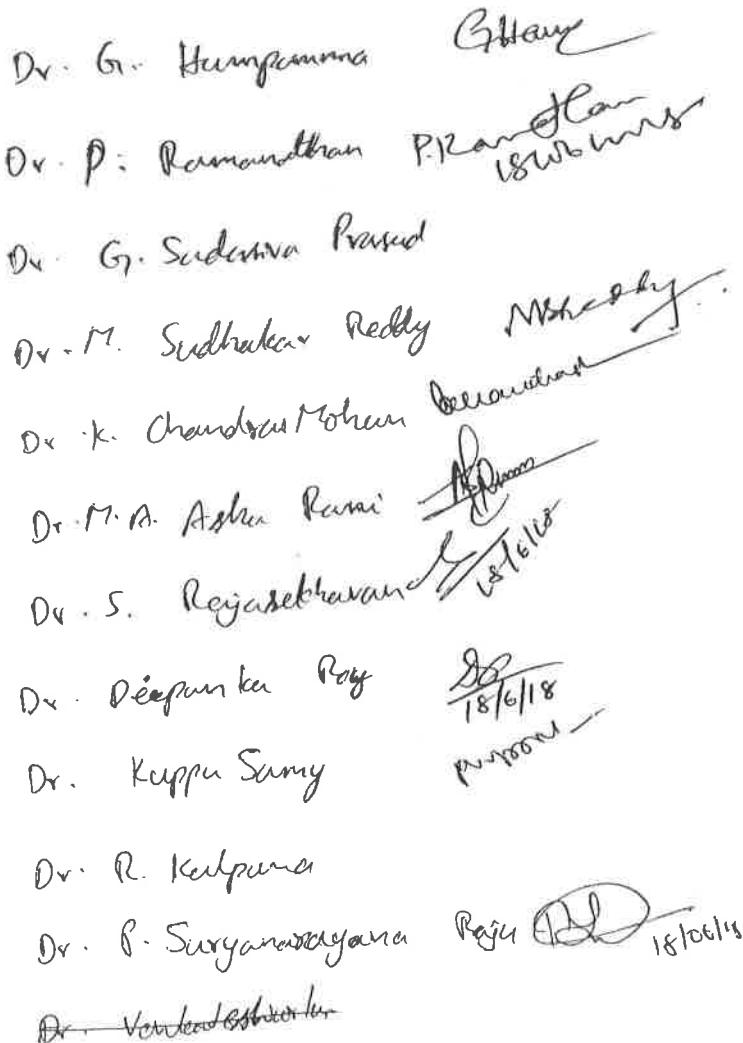 Dr. G. Humpamma
Dr. P. Ramanathan P.Ramathan
Dr. G. Sadasiva Prasad
Dr. M. Sudhakar Reddy
Dr. K. Chandra Mohan
Dr. M. A. Asha Rani
Dr. S. Rajasekharan 18/6/18
Dr. Deepanker Roy 18/6/18
Dr. Kuppu Samy
Dr. R. Kalpana
Dr. P. Suryanarayana Raju 18/06/18
Dr. Venkateshwarlu